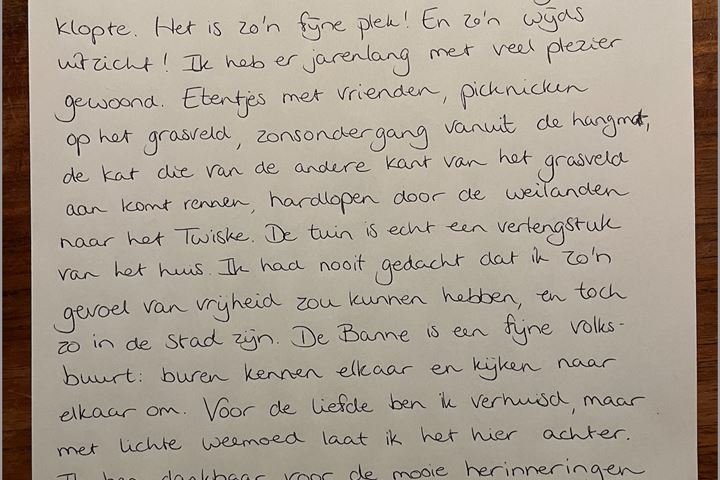 klopte. Het is zo'n fijne plek! En zo'n wijds
uitzicht! Ik heb er jarenlang met veel plezier
gewoond. Etentjes met vrienden, picknicken
op het grasveld, zonsondergang vanuit de hangmat,
de kat die van de andere kant van het grasveld
aan komt rennen, hardlopen door de weilanden
naar het Twiske. De tuin is echt een verlengstuk
van het huis. Ik had nooit gedacht dat ik zo'n
gevoel van vrijheid zou kunnen hebben, en toch
zo in de stad zijn. De Banne is een fijne volks-
buurt: buren kennen elkaar en kijken naar
elkaar om. Voor de liefde ben ik verhuisd, maar
met lichte weemoed laat ik het hier achter.
Ik ben dankbaar voor de mooie herinneringen